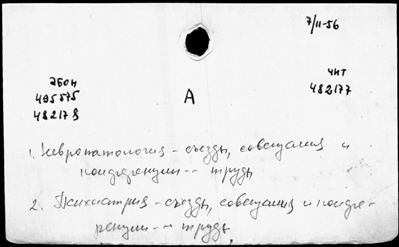 7/II-56
ЧИТ
482177
ЭБОН
495575
482178
А
1. Невропатология - съезды, совещания и
конференции -- труды
2. Психиатрия - съезды, совещания и конфе-
ренции -- труды